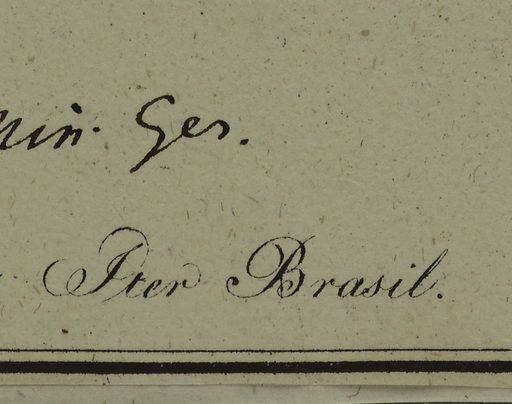 Min. Ger.
Iter Brasil.